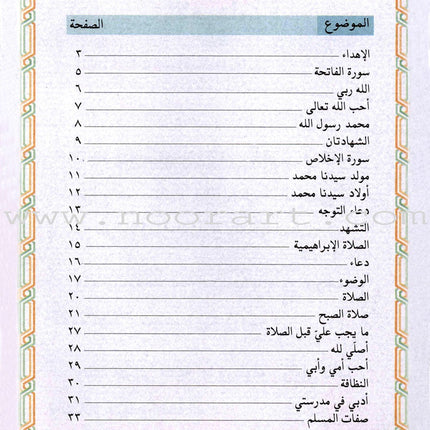 الموضوع الصفحة
الإهداء ٣
سورة الفاتحة ٥
الله ربي ٦
أحب الله تعالى ٧
محمد رسول الله ٨
الشهادتان ٩
سورة الإخلاص ١٠
مولد سيدنا محمد ١١
أولاد سيدنا محمد ١٢
دعاء التوجه ١٣
www.noorart.com
التشهد ١٤
الصلاة الإبراهيمية ١٥
دعاء ١٦
الوضوء ١٧
الصلاة ٢٠
صلاة الصبح ٢١
ما يجب عليّ قبل الصلاة ٢٧
أصلّي لله ٢٨
أحب أمي وأبي ٢٩
النظافة ٣٠
أدبي في مدرستي ٣١
صفات المسلم ٣٣